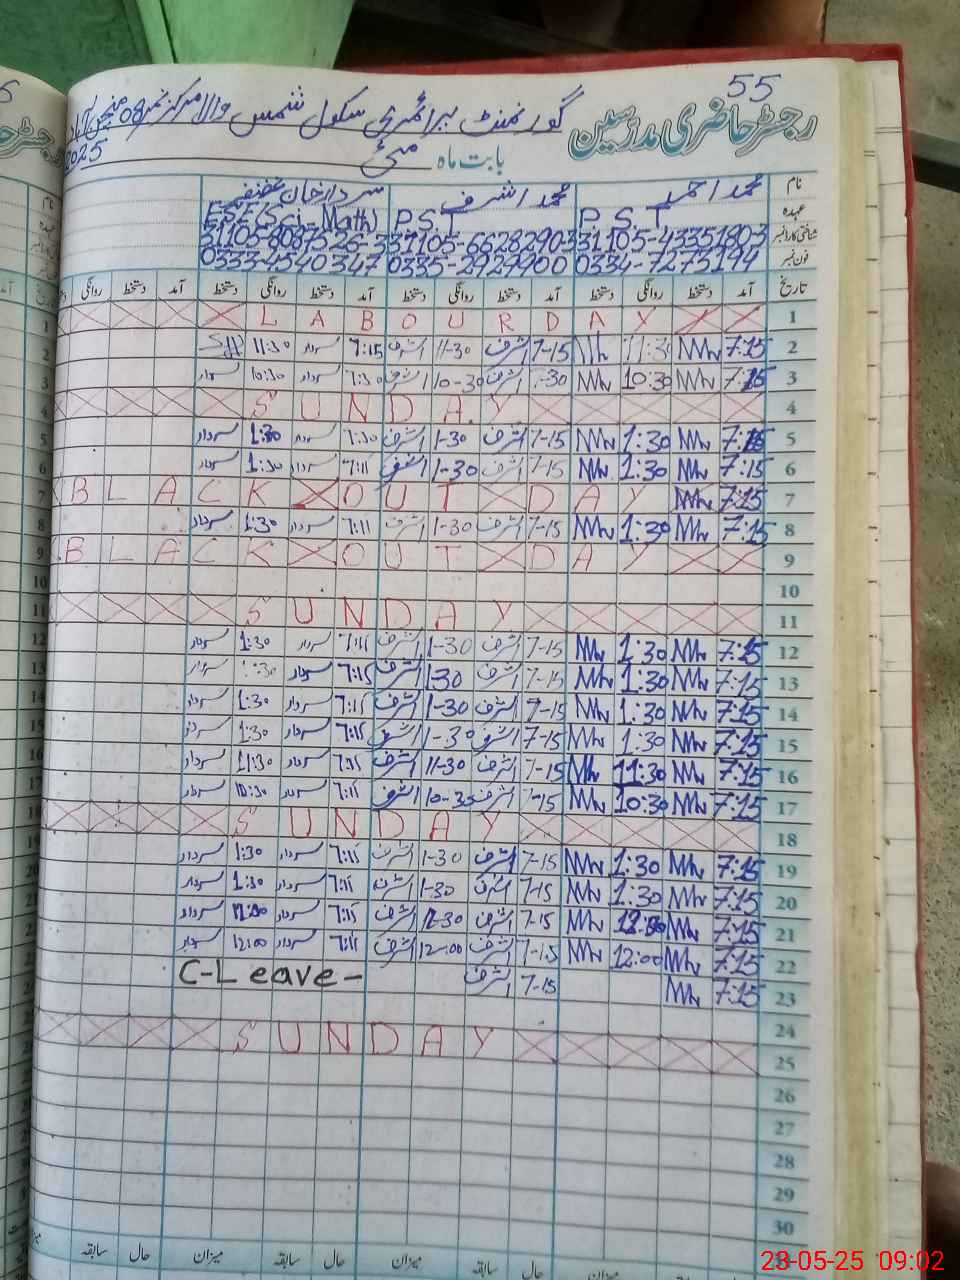 55
رجسٹر حاضری مدرسین
گورنمنٹ پرائمری سکول شمس والا مرکز نمبر 08
بابت ماہ مئی 2025
نام محمد احمد محمد اشرف سردار خان غضنفر
عہدہ P.S.T P.S.T ESE(Sci-Math)
شناختی کارڈ نمبر
فون نمبر 0334-7273194 0335-2929900 0333-4540347
تاریخ آمد دستخط روانگی دستخط آمد دستخط روانگی دستخط آمد دستخط روانگی دستخط آمد دستخط روانگی
1 LABOUR DAY
2 7:15 11:30 7-15 اشرف 11-30 اشرف 7:15 سردار 11:30
3 7:15 10:30 7-30 اشرف 10-30 اشرف 7:30 سردار 10:30 سردار
4 SUNDAY
5 7:15 1:30 7-15 اشرف 1-30 اشرف 7:30 سردار 1:30 سردار
6 7:15 1:30 7-15 اشرف 1-30 7:15 سردار 1:30 سردار
7 7:15 BLACK OUT DAY
8 7:15 1:30 7-15 اشرف 1-30 اشرف 7:15 سردار 1:30 سردار
9 BLACK OUT DAY
10
11 SUNDAY
12 7:15 1:30 7-15 اشرف 1-30 اشرف 7:15 سردار 1:30 سردار
13 7:15 1:30 7-15 اشرف 1-30 اشرف 7:15 سردار 1:30 سردار
14 7:15 1:30 7-15 اشرف 1-30 اشرف 7:15 سردار 1:30 سردار
15 7:15 1:30 7-15 اشرف 1-30 اشرف 7:15 سردار 1:30 سردار
16 7:15 11:30 7-15 اشرف 11-30 اشرف 7:15 سردار 11:30 سردار
17 7:15 10:30 7-15 اشرف 10-30 اشرف 7:15 سردار 10:30 سردار
18 SUNDAY
19 7:15 1:30 7-15 اشرف 1-30 اشرف 7:15 سردار 1:30 سردار
20 7:15 1:30 7-15 اشرف 1-30 اشرف 7:15 سردار 1:30 سردار
21 7:15 7-15 اشرف اشرف 7:15 سردار سردار
22 7:15 12:00 7-15 اشرف 12-00 اشرف 7:15 سردار 12:00 سردار
23 7:15 7-15 اشرف C-Leave-
24
25 SUNDAY
26
27
28
29
30
میزان حال سابقہ میزان حال سابقہ میزان حال سابقہ
23-05-25 09:02